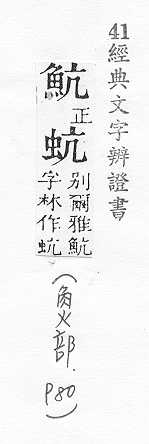 41 經典文字辨證書
魧正蚢
別爾雅魧
字林作蚢
(魚部.P80)